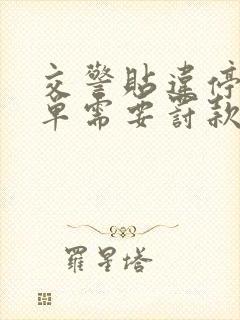 交警貼違停
單需要罰款
羅星塔